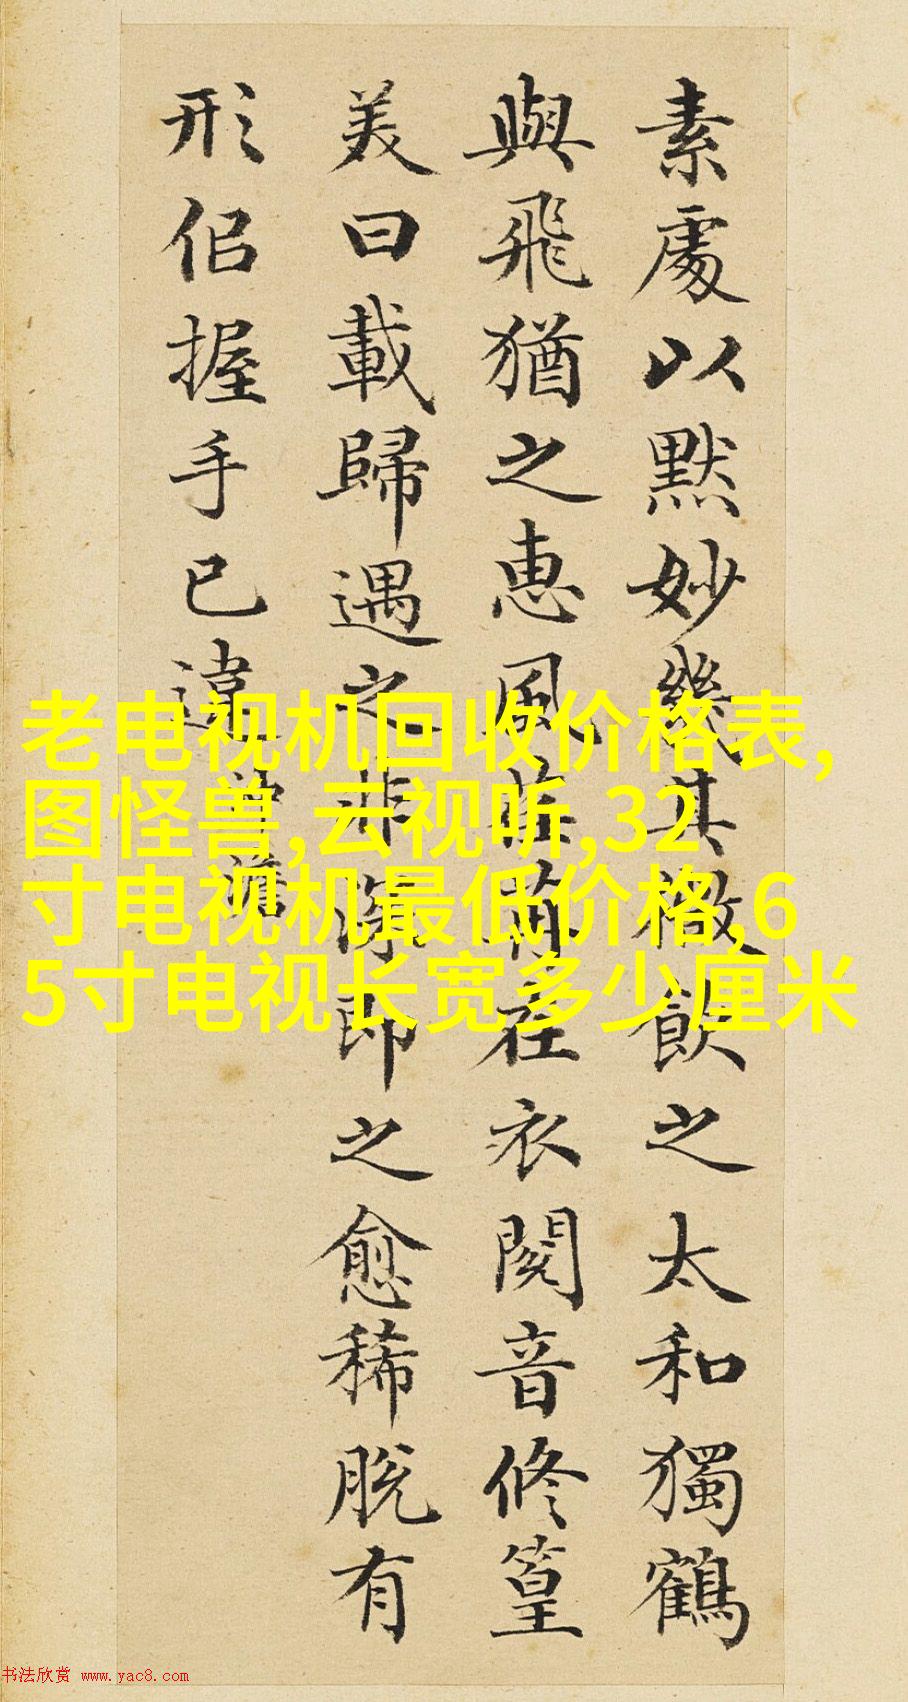 素處以默妙幾其微飲之太和獨鶴
與飛猶之惠風荏苒在衣閱音修篁
美曰載歸遇之非深即之愈稀脫有
形佀握手已違
澹
老电视机回收价格表,
图怪兽,云视听,32
寸电视机最低价格,6
5寸电视长宽多少厘米
书法欣赏 www.yac8.com